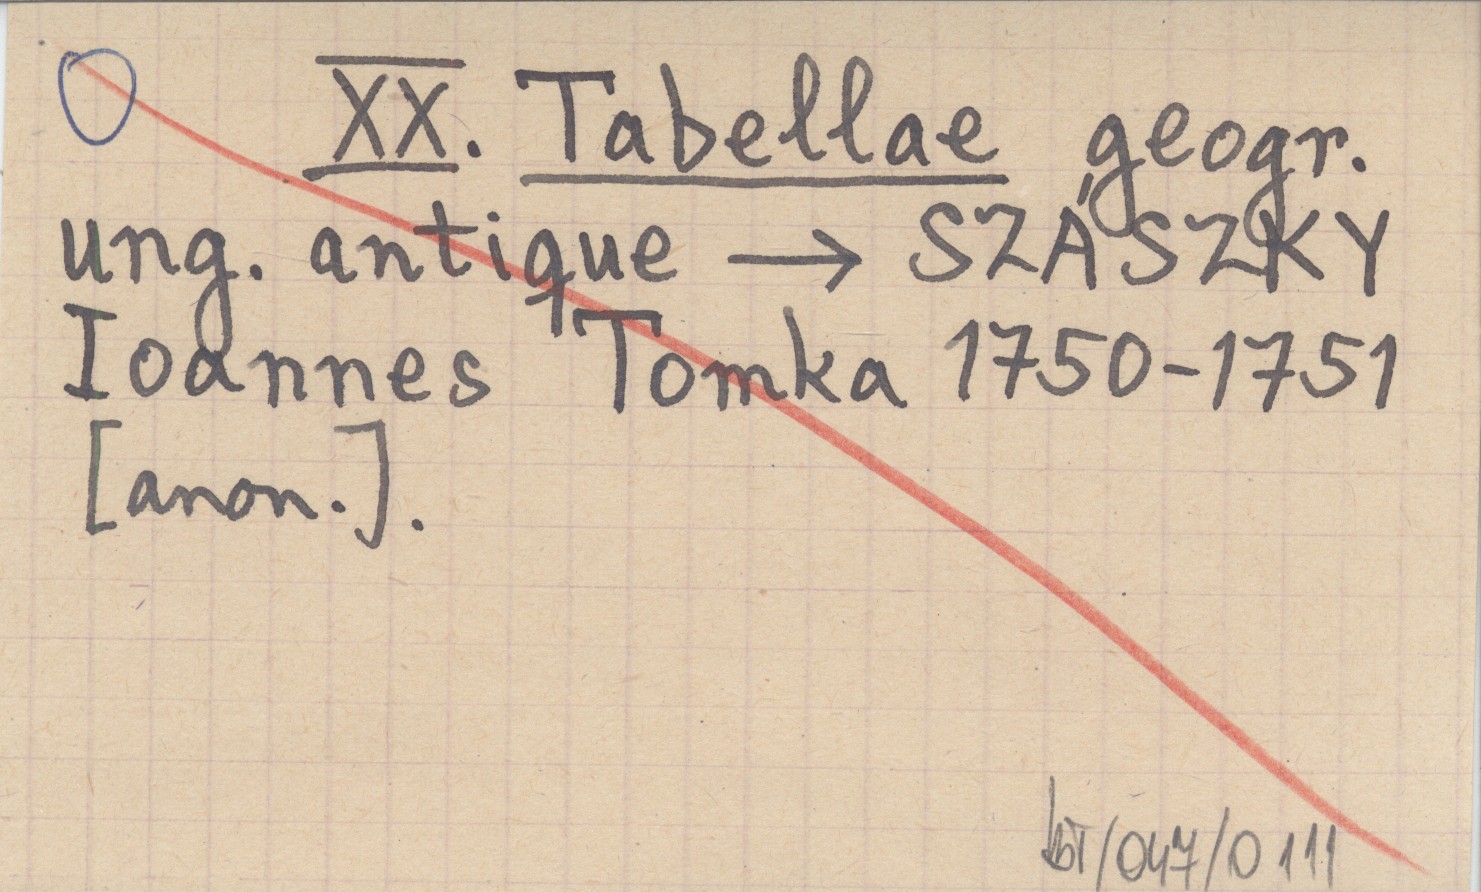 XX. Tabellae geogr.
ung. antique → SZÁSZKY
Ioannes Tomka 1750-1751
[anon.].
/047/0111